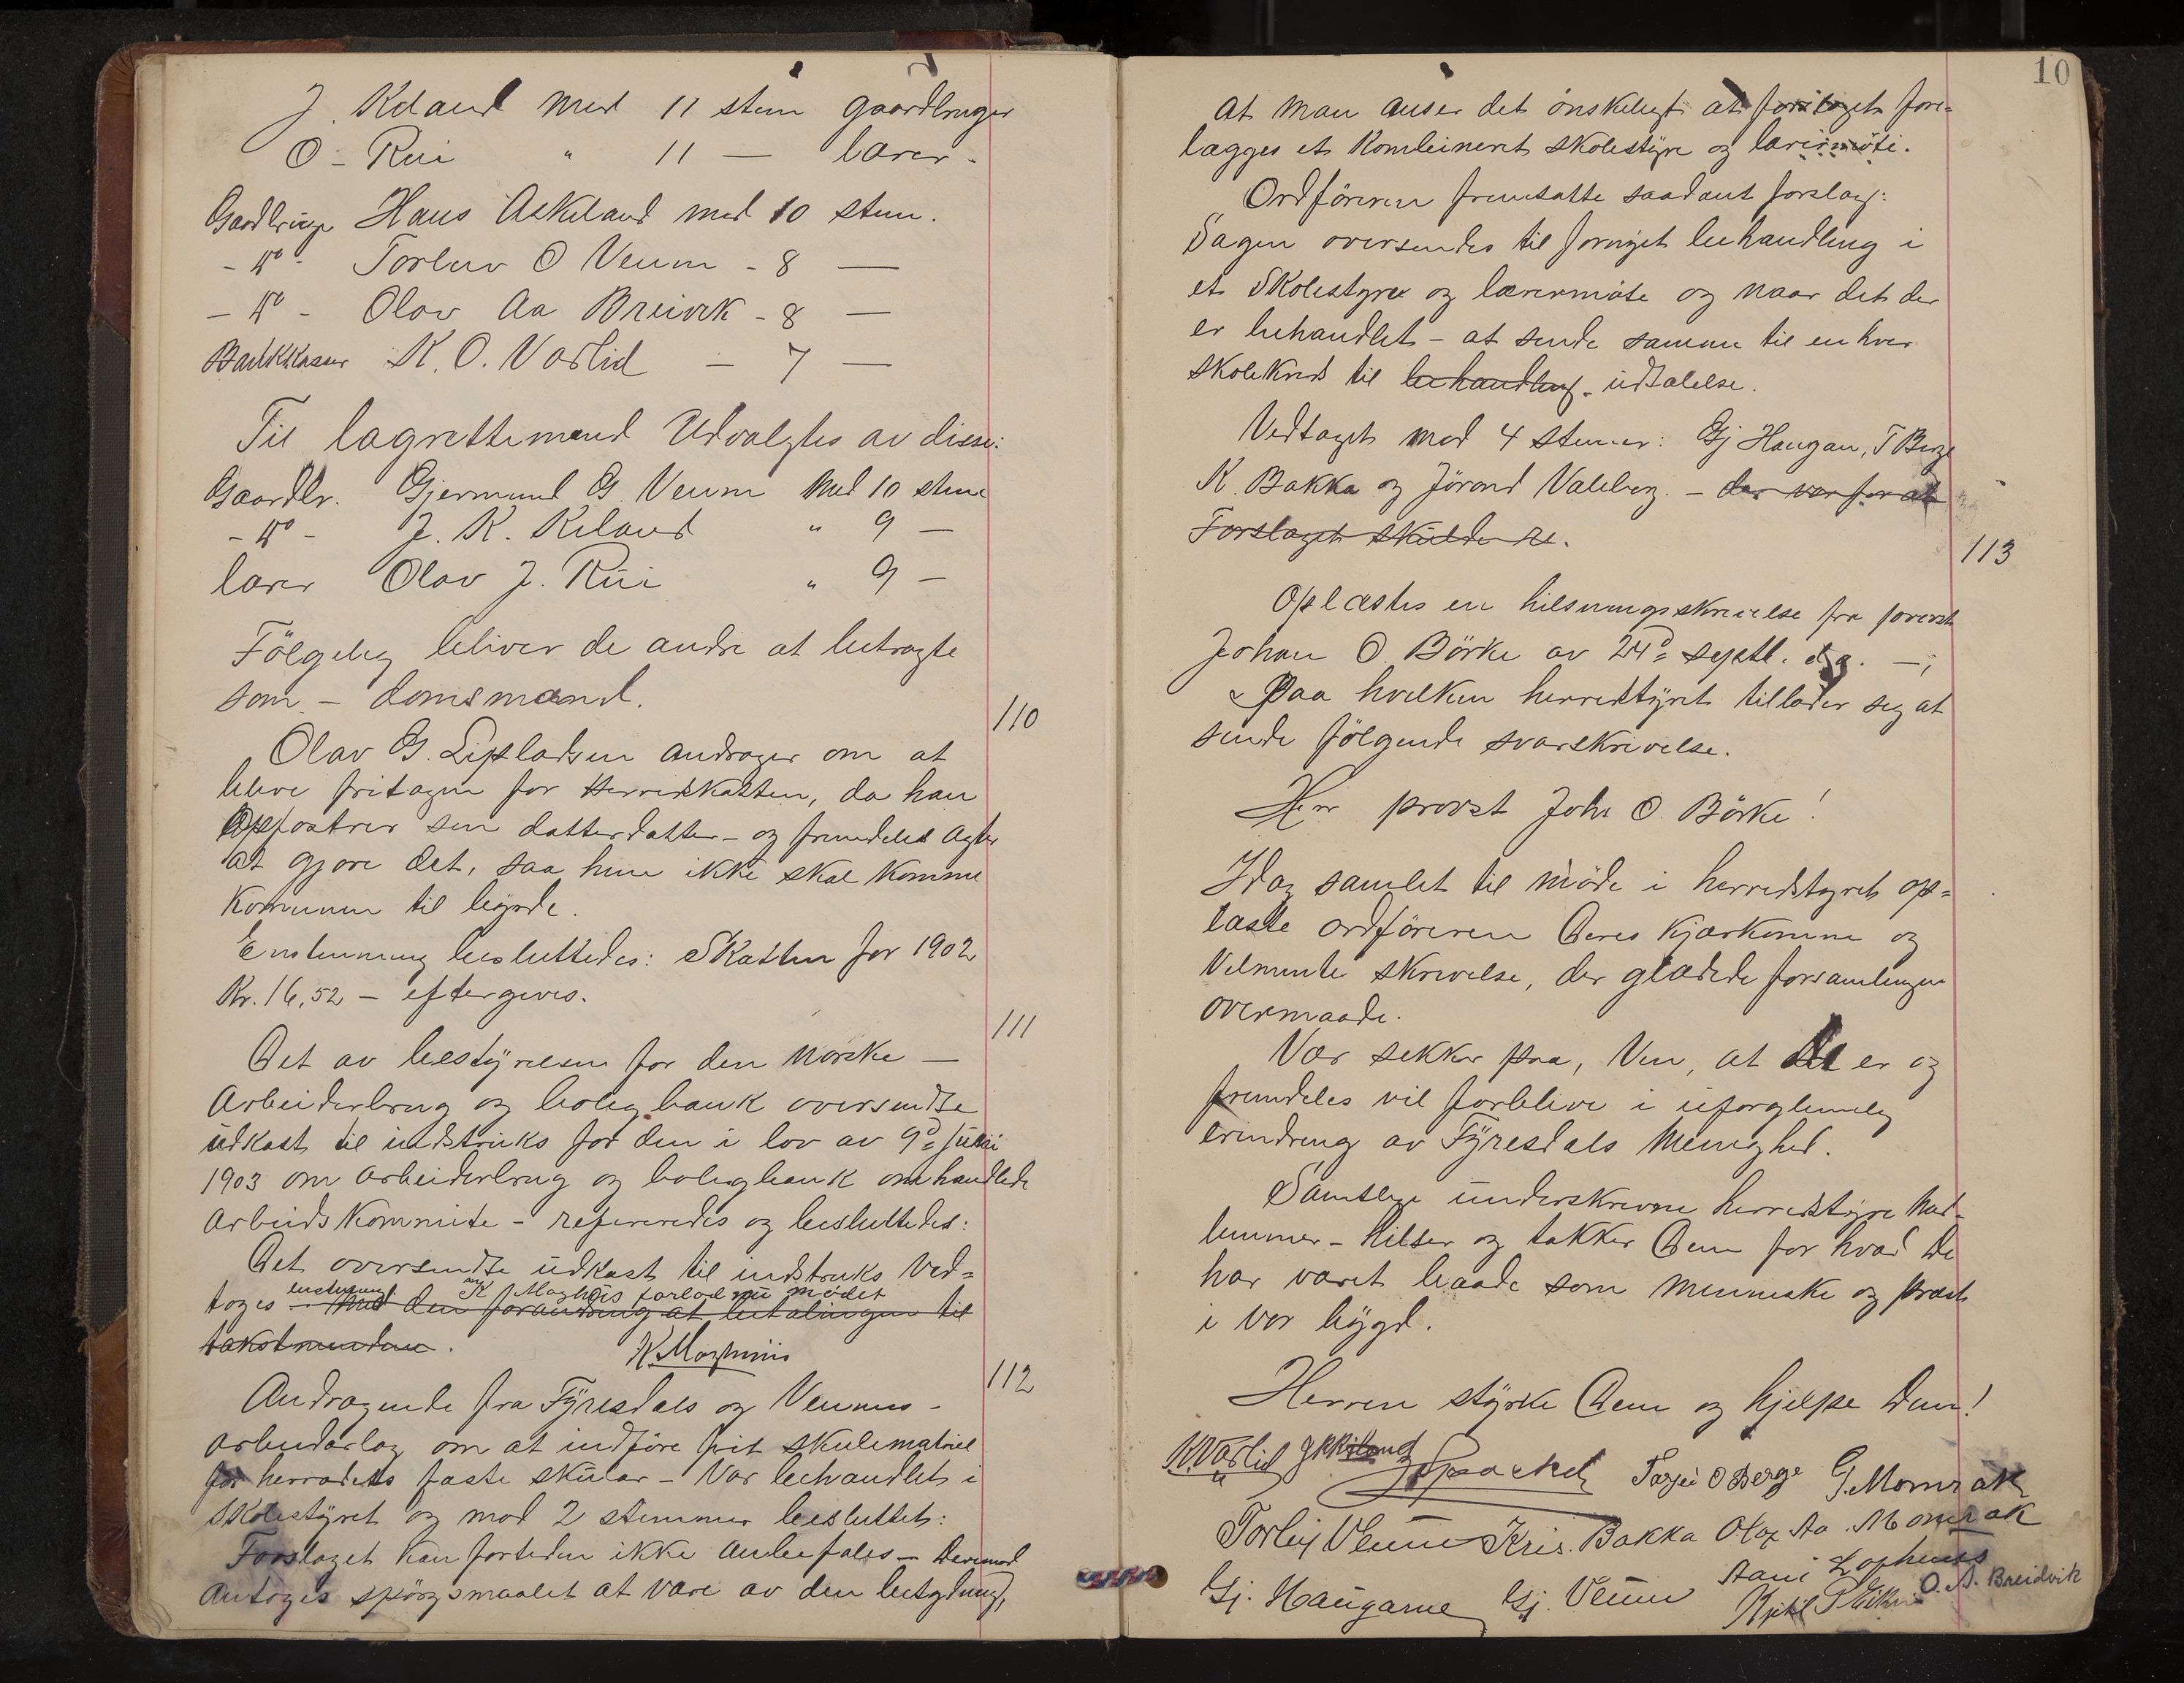 J. Kiland med 11 stem gaardbruger
O - Rui " 11 — lærer -
Gardbruger Hans Askeland med 10 stem.
- do - Torleiv O Veum - 8 —
- do - Olav Aa Breivik - 8 —
Bankkasser K. O. Vaslid — 7 —
Til lagrettemænd Udvalgtes av disse:
Gaardbr. Gjermund G. Veum med 10 stem
- do - J. K. Kiland " 9 —
lærer Olav J. Rui " 9 —
Fölgelig bliver de andre at betragte
som - domsmænd.
110
Olav G. Lipladsen andrager om at
blive fritagen for Herredskatten, da han
Oppfostrer sin datterdatter - og fremdeles agter
at gjøre det, saa hun ikke skal komme
Kommunen til byrde.
Enstemmig besluttedes: Skatten for 1902
Kr. 16,52 - eftergives.
111
Det av bestyrelsen for den norske —
Arbeiderbrug og boligbank oversendte
udkast til indstruks for den i lov av 9de juni
1903 om arbeiderbrug og boligbank omhandlede
Arbeidskommite - refereredes og besluttedes:
Det oversendte udkast til indstruks Ved=
enstemmig K Moghus forlod nu mødet
toges - med den forandring at betalingen til
takstmendene.
K. Moghuus
112
Andragende fra Fyresdals og Veums -
arbeidarlag om at indføre frit skulematriel
for herradets faste skular - Var behandlet i
Skolestyret og mod 2 stemmer besluttet:
Forslaget kan fortiden ikke anbefales - Derimod
antoges spörgsmaalet at være av den betydning,
10
at man anser det ønskeligt at forslaget fore=
lægges et kombineret skolestyre og lærermöte.
Ordföreren fremsatte saadant forslag:
Sagen oversendes til fornyet behandling i
et Skolestyre og lærermøte og naar det der
er behandlet - at sende samme til enhver
skolekreds til behandling - udtalelse.
Vedtaget mod 4 stemmer: Gj Haugan, T Berge
K. Bakka og Jörand Valeberg. - der var for at
Forslaget skulde re.
113
Oplæstes en hilsningsskrivelse fra provst
Johan O. Börke av 24de septb. d.a. —;
Paa hvilken herredstyret tillader seg at
sende fölgende svarskrivelse.
Herr provst Joh. O. Börke!
Idag samlet til möde i herredstyret op=
læste ordföreren Deres Kjærkomne og
Velmente skrivelse, der glædede forsamlingen
overmaade.
Vær sikker paa, Ven, at De er og
fremdeles vil forblive i uforglemmelig
erindring av Fyresdals Menighed.
Samtlige underskrevne herredstyre med-
lemmer - hilser og takker Dem for hvad De
har været baade som menneske og præst
i vor bygd.
Herren styrke Dem og hjelpe Dem!
K. Vaslid J K Kiland Tarjei O Berge G. Momrak
Torleif Veum Kris. Bakka Olaf Aa. Momrak
Gj. Haugarne Gj. Veum Aani Lophuus
Kjetil O. A. Breidvik